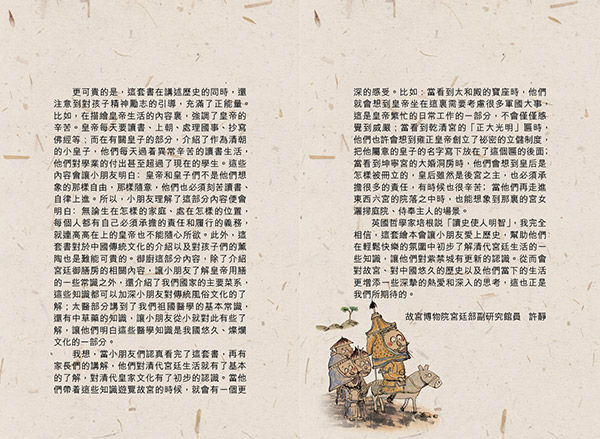 更可貴的是，這套書在講述歷史的同時，還
注意到對孩子精神勵志的引導，充滿了正能量。
比如，在描繪皇帝生活的內容裏，強調了皇帝的
辛苦。皇帝每天要讀書、上朝、處理國事、抄寫
佛經等；而在有關皇子的部分，介紹了作為清朝
的小皇子，他們每天過着異常辛苦的讀書生活，
他們對學業的付出甚至超過了現在的學生。這些
內容會讓小朋友明白：皇帝和皇子們不是他們想
象的那樣自由，那樣隨意，他們也必須刻苦讀書
自律上進。所以，小朋友理解了這部分內容便會
明白：無論生在怎樣的家庭、處在怎樣的位置，
每個人都有自己必須承擔的責任和履行的義務，
就連高高在上的皇帝也不能隨心所欲。此外，這
套書對於中國傳統文化的介紹以及對孩子們的薰
陶也是難能可貴的。御廚這部分內容，除了介紹
宮廷御膳房的相關內容，讓小朋友了解皇帝用膳
的一些常識之外，還介紹了我們國家的主要菜系，
這些知識都可以加深小朋友對傳統風俗文化的了
解；太醫部分講到了我們祖國醫學的基本常識，
還有中草藥的知識，讓小朋友從小就對此有些了
解，讓他們明白這些醫學知識是我國悠久、燦爛
文化的一部分。
我想，當小朋友們認真看完了這套書，再有
家長們的講解，他們對清代宮廷生活就有了基本
的了解，對清代皇家文化有了初步的認識。當他
們帶着這些知識遊覽故宮的時候，就會有一個更
深的感受。比如：當看到太和殿的寶座時，他們
就會想到皇帝坐在這裏需要考慮很多軍國大事，
這是皇帝繁忙的日常工作的一部分，不會僅僅感
覺到威嚴；當看到乾清宮的「正大光明」匾時，
他們也許會想到雍正皇帝創立了祕密的立儲制度，
把他屬意的皇子的名字寫下放在了這個匾的後面；
當看到坤寧宮的大婚洞房時，他們會想到皇后是
怎樣被冊立的，皇后雖然是後宮之主，也必須承
擔很多的責任，有時候也很辛苦；當他們再走進
東西六宮的院落之中時，也能想象到那裏的宮女
灑掃庭院、侍奉主人的場景。
英國哲學家培根説「讀史使人明智」，我完全
相信，這套繪本會讓小朋友愛上歷史，幫助他們
在輕鬆快樂的氛圍中初步了解清代宮廷生活的一
些知識，讓他們對紫禁城有更新的認識。從而會
對故宮、對中國悠久的歷史以及他們當下的生活
更增添一些深摯的熱愛和深入的思考，這也正是
我們所期待的。
故宮博物院宮廷部副研究館員　許靜